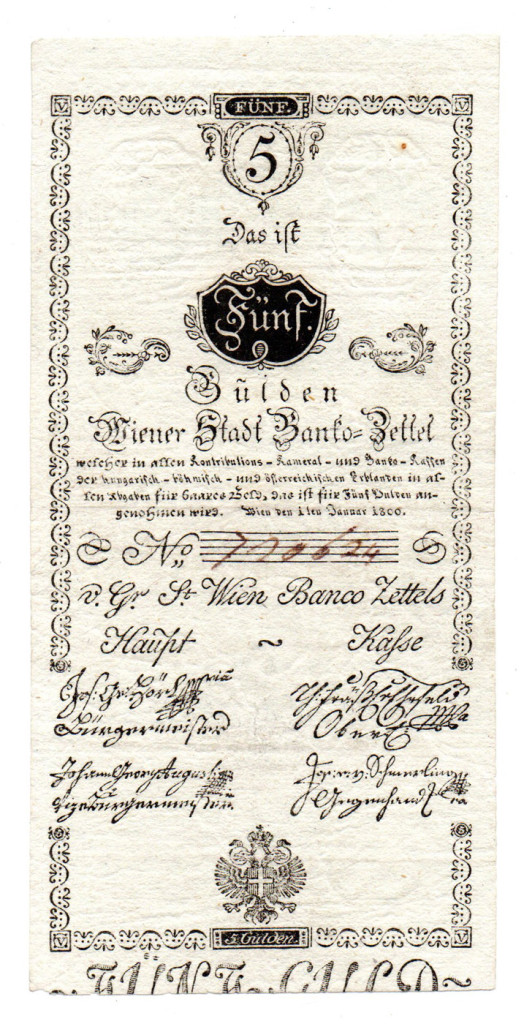 V FÜNF. V
5
Das ist
Fünf.
Gulden
Wiener Stadt Banko-Zettel
welcher in allen Kontributions- Kameral- und Banko-Kassen
der hungarisch- böhmisch- und österreichischen Erblanden in al-
len Abgaben für baares Geld, das ist für Fünf Gulden an-
genohmen wird. Wien den 1ten Januar 1800.
No 720624
v. Gr. St. Wien Banco Zettels
Haupt ~ Kasse
Jos: Geo: Hörl
Bürgermeister Oberf
Johann Georg Augusti
Vizebürgermeister Jos: v: Schmerling
Gegenhand
V 5 Gulden. V
FÜNF GULD